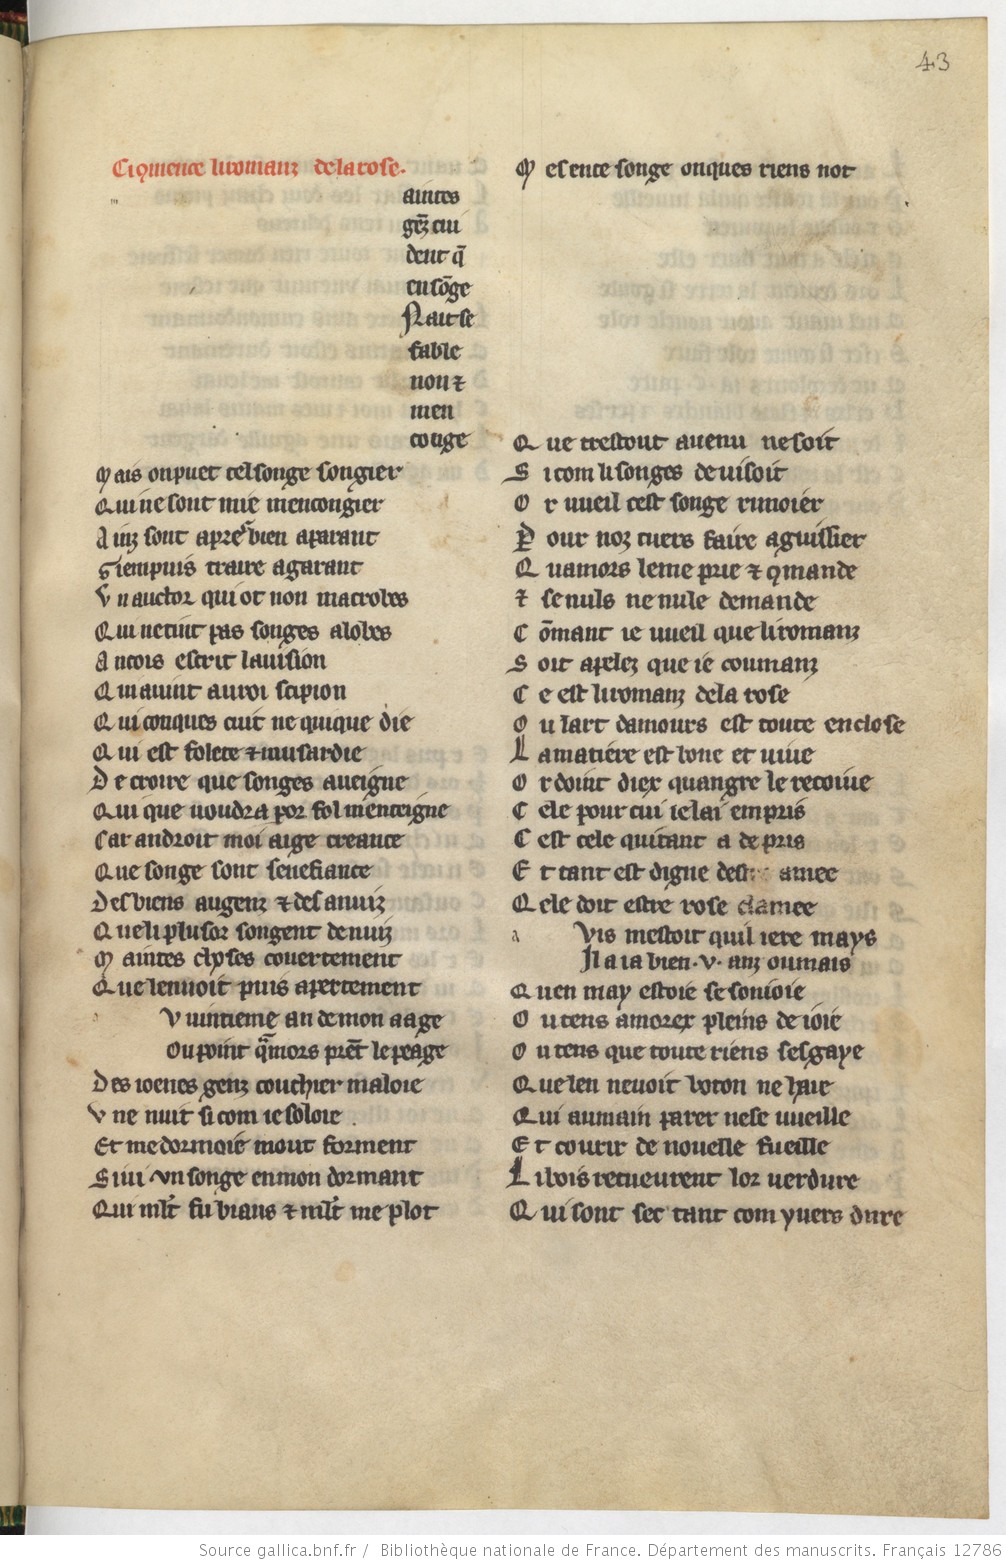 43
Ci 9mence li romanz de la rose.
aintes
gēz cui
dent q̄
en sōge
Nait se
fable
non ⁊
men
conge
Mais on puet tel songe songier
Qui ne sont mie mencongier
Ainz sont apres bien aparant
Si en puis traire a garant
Vn auctor qui ot non macrobes
Qui ne tint pas songes a lobes
Ancois escrit la uision
Qui auint au roi scipion
Qui conques cuit ne qui que die
Qui est folete ⁊ musardie
De croire que songes aueigne
Qui que uoudra por fol men teigne
Car androit moi ai ge creance
Que songe sont senefiance
Des biens au genz ⁊ des anuiz
Que li plusor songent de nuiz
Maintes choses couertement
Que len uoit puis apertement
V uintieme an de mon aage
Ou point q̄mors prent le peage
Des ioenes genz couchier maloie
Vne nuit si com ie soloie
Et me dormoie mout forment
Si ui vn songe en mon dormant
Qui mlt fu biaus ⁊ mlt me plot
Mes en ce songe onques riens not
Que trestout auenu ne soit
Si com li songes deuisoit
Or uueil cest songe rimoier
Pour noz cuers faire aguissier
Quamors le me prie ⁊ 9mande
⁊ se nuls ne nule demande
Cōmant ie uueil que li romanz
Soit apelez que ie coumanz
Ce est li romanz de la rose
Ou lart damours est toute enclose
La matiere est bone et uiue
Or doint diex quan gre le recoiue
Cele pour cui ie lai empris
Cest cele qui tant a de pris
Et tant est digne destre amee
Qele doit estre rose clamee
a Vis mestoit quil iere mays
Il a ia bien .v. anz ou mais
Quen may estoie se sonioie
Ou tens amorex pleins de ioie
Ou tens que toute riens sesgaye
Que len ne uoit boton ne haie
Qui au main parer ne se uueille
Et courir de nouelle fueille
Li bois recueurent lor uerdure
Qui sont sec tant com yuers dure
Source gallica.bnf.fr / Bibliothèque nationale de France. Département des manuscrits. Français 12786